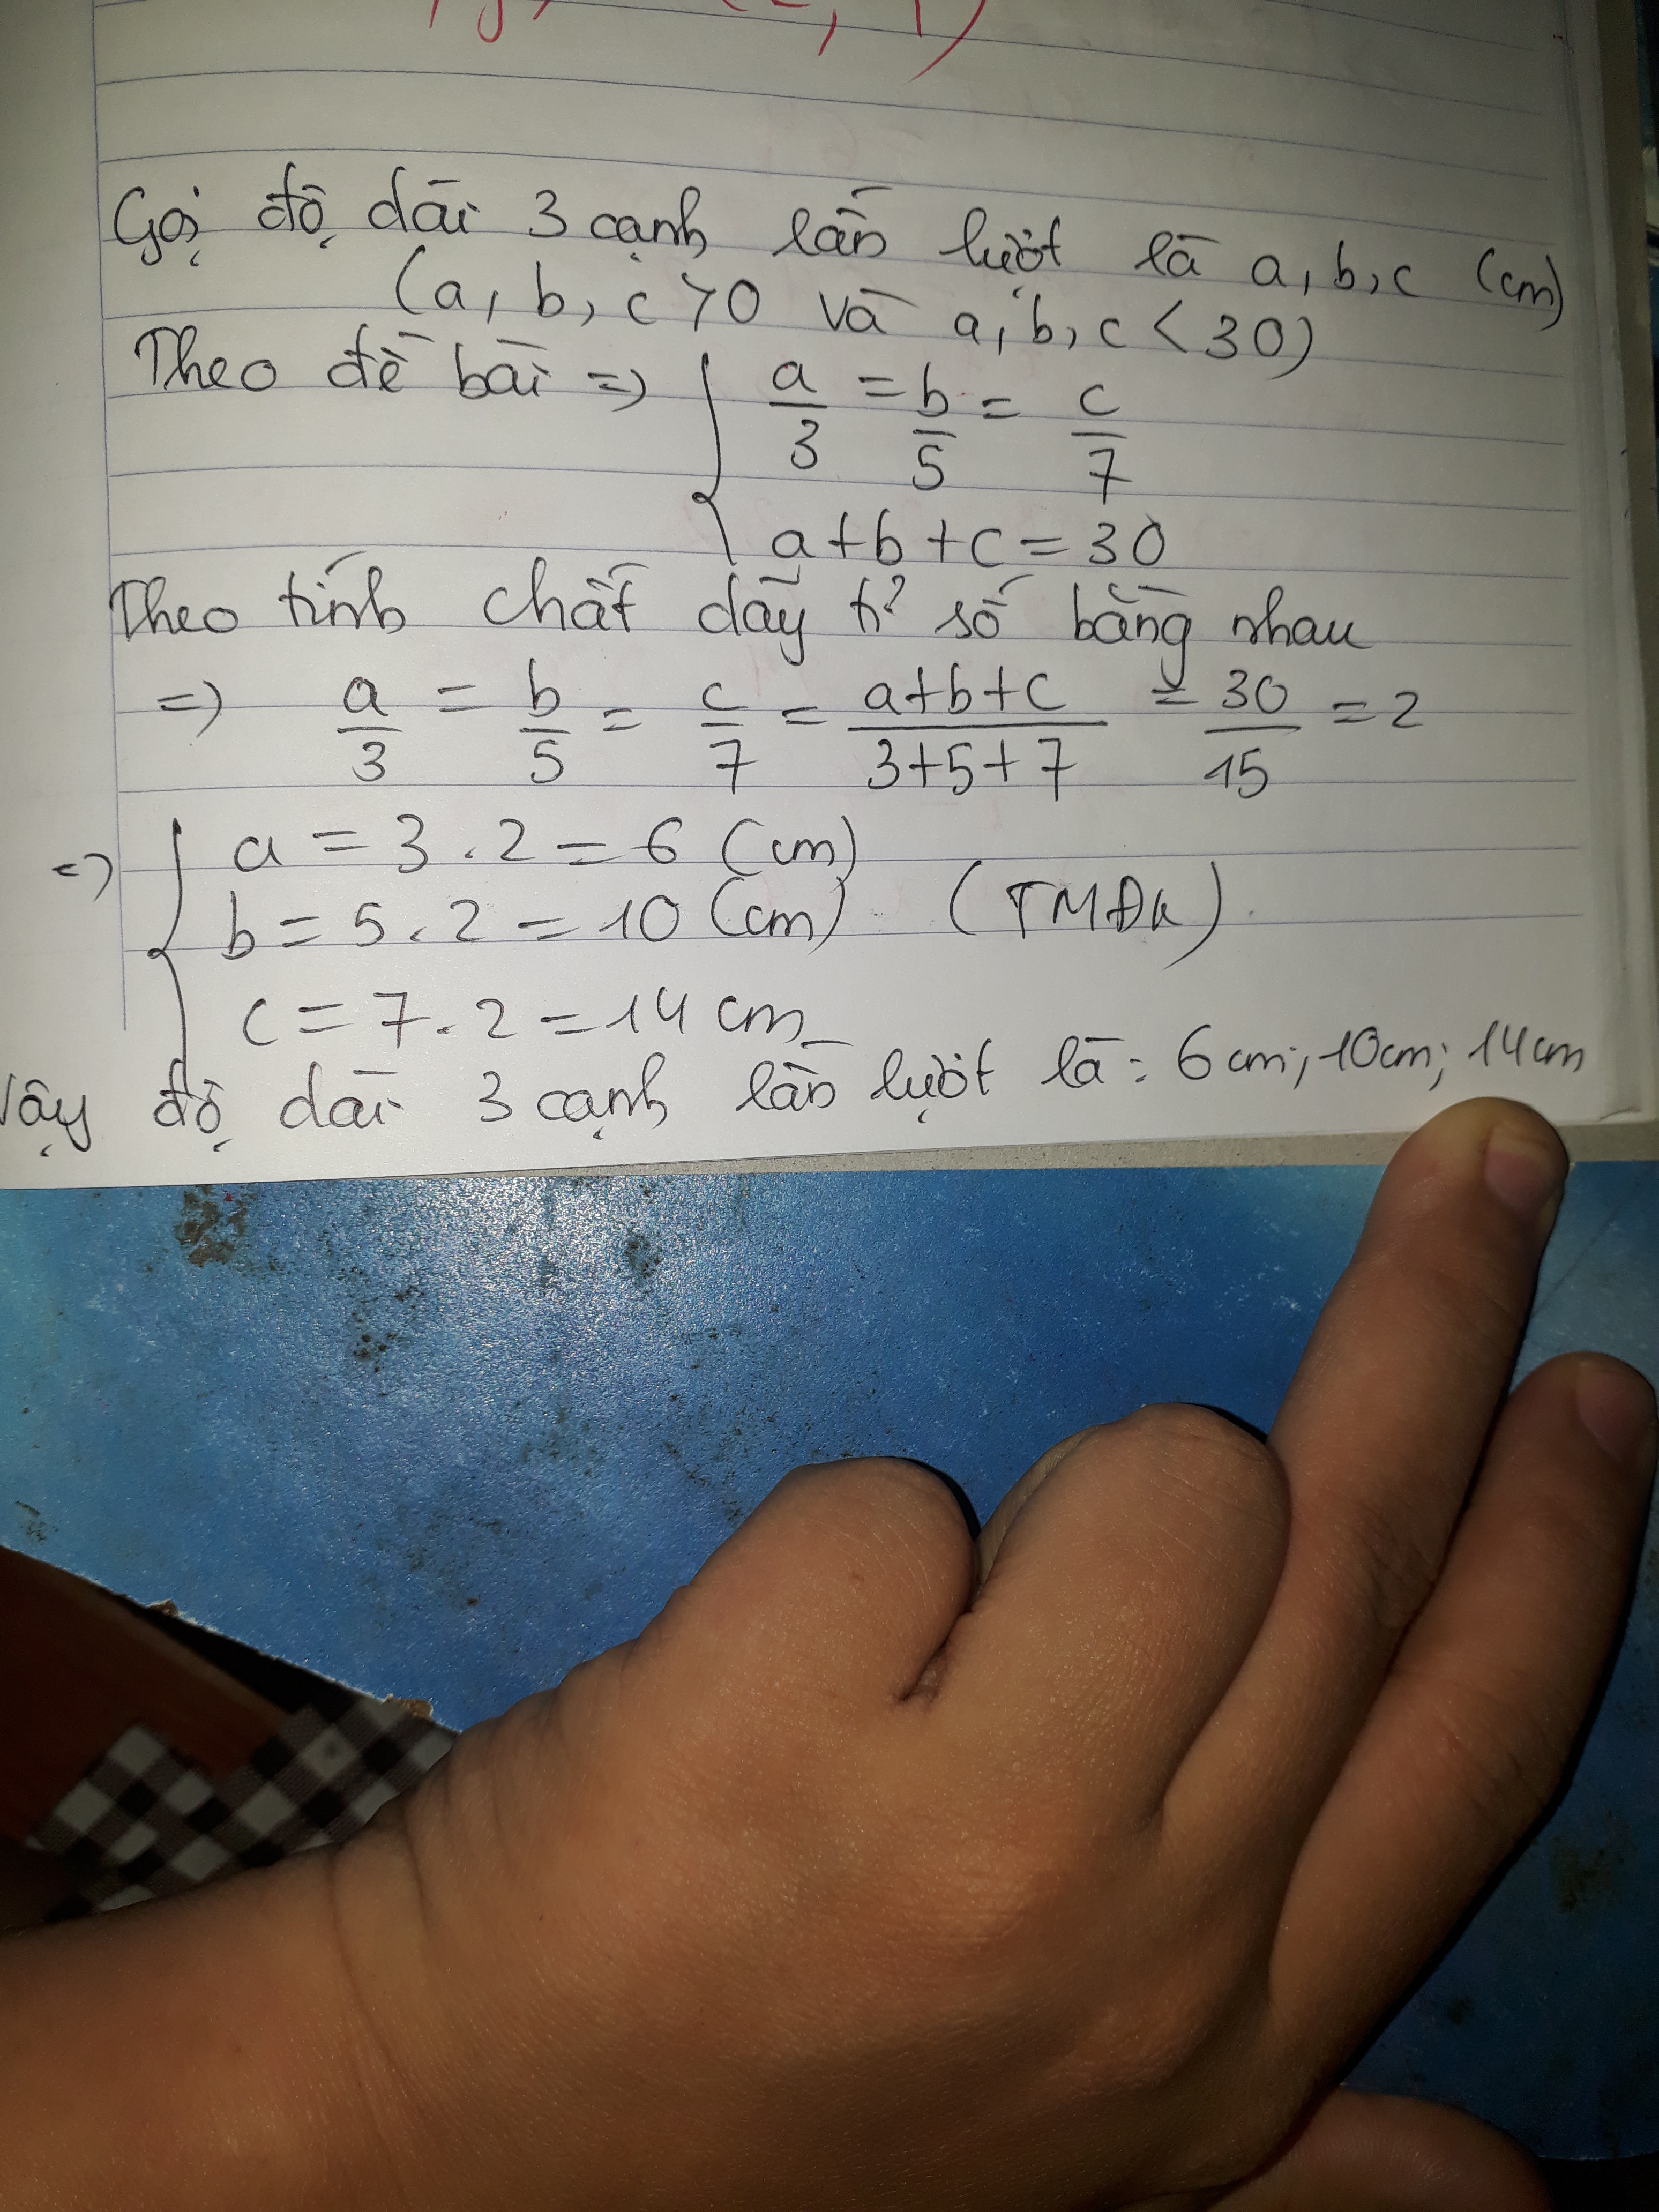 Gọi độ dài 3 cạnh lần lượt là a, b, c (cm)
(a, b, c > 0 và a, b, c < 30)
Theo đề bài => { a/3 = b/5 = c/7
a + b + c = 30
Theo tính chất dãy tỉ số bằng nhau
=> a/3 = b/5 = c/7 = (a+b+c)/(3+5+7) = 30/15 = 2
=> { a = 3 . 2 = 6 (cm)
b = 5 . 2 = 10 (cm) (TMĐK)
c = 7 . 2 = 14 cm
Vậy độ dài 3 cạnh lần lượt là: 6cm; 10cm; 14cm